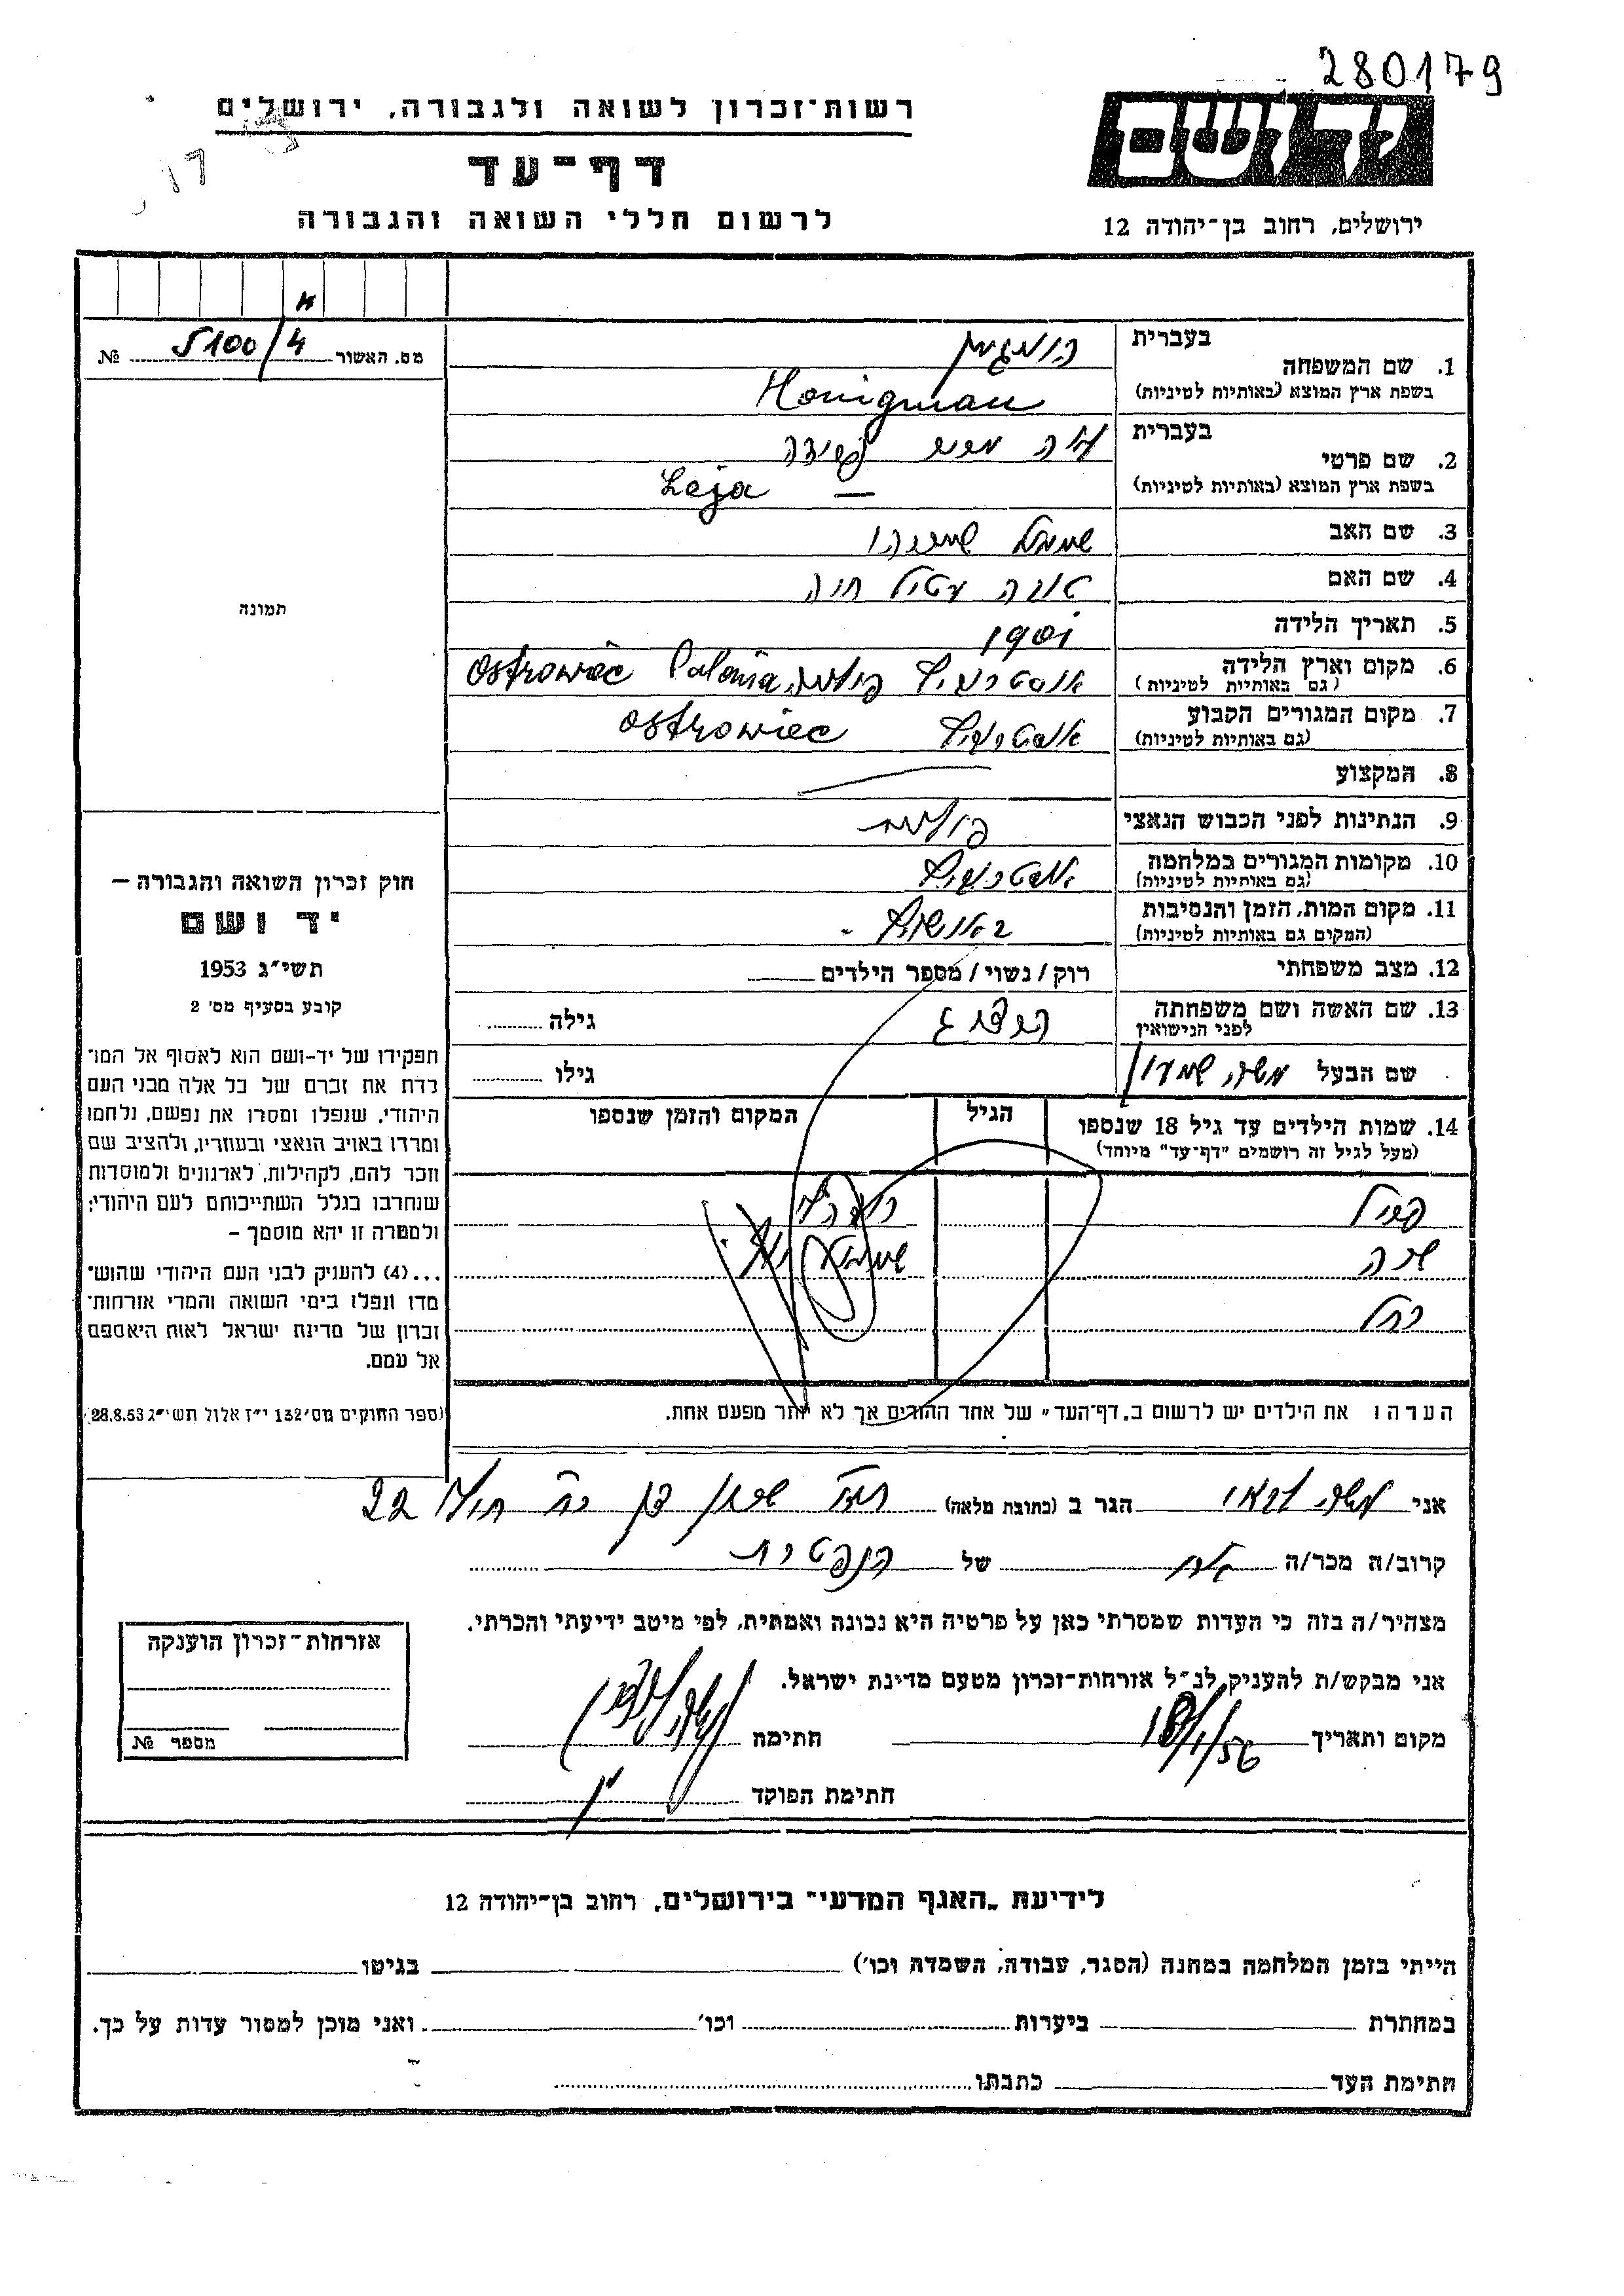 280179
יד ושם
רשות־זכרון לשואה ולגבורה, ירושלים
דף־עד
לרשום חללי השואה והגבורה
ירושלים, רחוב בן־יהודה 12
מס. האשור 5100/4 №
בעברית
1. שם המשפחה
בשפת ארץ המוצא (באותיות לטיניות) Honigman
בעברית
2. שם פרטי לאה
בשפת ארץ המוצא (באותיות לטיניות) Leja —
3. שם האב שמואל
4. שם האם חיה
5. תאריך הלידה 1901
6. מקום וארץ הלידה Ostrowiec Polania פולניה
(גם באותיות לטיניות)
7. מקום המגורים הקבוע Ostrowiec
(גם באותיות לטיניות)
8. המקצוע
9. הנתינות לפני הכבוש הנאצי פולנית
10. מקומות המגורים במלחמה
(גם באותיות לטיניות)
11. מקום המות, הזמן והנסיבות
(המקום גם באותיות לטיניות)
12. מצב משפחתי רוק/נשוי/מספר הילדים
13. שם האשה ושם משפחתה גילה
לפני הנישואין
שם הבעל משה שמעון גילו
14. שמות הילדים עד גיל 18 שנספו הגיל המקום והזמן שנספו
(מעל לגיל זה רושמים "דף־עד" מיוחד)
שרה
רחל
הערה: את הילדים יש לרשום ב"דף־העד" של אחד ההורים אך לא יותר מפעם אחת.
תמונה
חוק זכרון השואה והגבורה —
יד ושם
תשי"ג 1953
קובע בסעיף מס' 2
תפקידו של יד-ושם הוא לאסוף אל המו־
לדת את זכרם של כל אלה מבני העם
היהודי, שנפלו ומסרו את נפשם, נלחמו
ומרדו באויב הנאצי ובעוזריו, ולהציב שם
וזכר להם, לקהילות, לארגונים ולמוסדות
שנחרבו בגלל השתייכותם לעם היהודי;
ולמטרה זו יהא מוסמך –
...(4) להעניק לבני העם היהודי שהוש־
מדו ונפלו בימי השואה והמרי אזרחות־
זכרון של מדינת ישראל לאות היאספם
אל עמם.
(ספר החוקים מס' 132 י"ז אלול תשי"ג 28.8.53)
אני משה הגר ב (כתובת מלאה) 22
קרוב/ה מכר/ה אח של הנפטרת
מצהיר/ה בזה כי העדות שמסרתי כאן על פרטיה היא נכונה ואמתית, לפי מיטב ידיעתי והכרתי.
אני מבקש/ת להעניק לנ"ל אזרחות־זכרון מטעם מדינת ישראל.
מקום ותאריך 18/1/56 חתימה
חתימת הפוקד
אזרחות־זכרון הוענקה
מספר №
לידיעת „האגף המדעי" בירושלים, רחוב בן־יהודה 12
הייתי בזמן המלחמה במחנה (הסגר, עבודה, השמדה וכו') בגיטו
במחתרת ביערות וכו' ואני מוכן למסור עדות על כך.
חתימת העד כתבתו